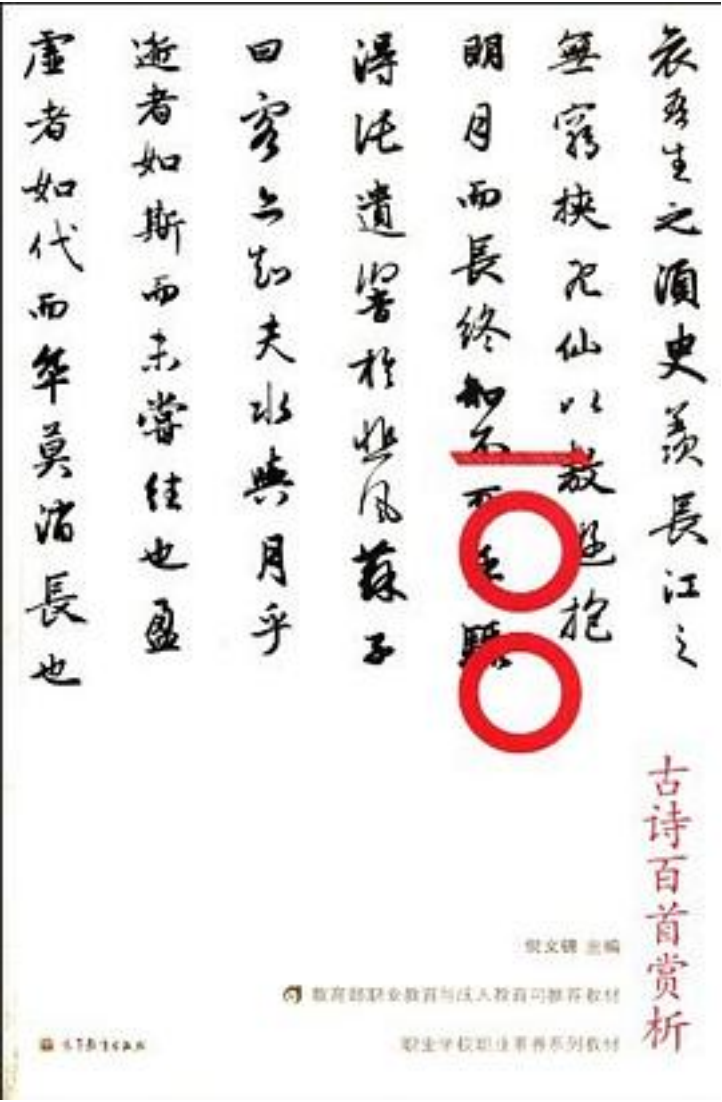 哀吾生之須臾羨長江之
無窮挾飛仙以遨遊抱
明月而長終知不可乎驟
得託遺響於悲風蘇子
曰客亦知夫水與月乎
逝者如斯而未嘗往也盈
虛者如代而卒莫消長也
一〇〇
古诗百首赏析
倪文锦 主编
教育部职业教育与成人教育司推荐教材
职业学校职业素养系列教材
高等教育出版社